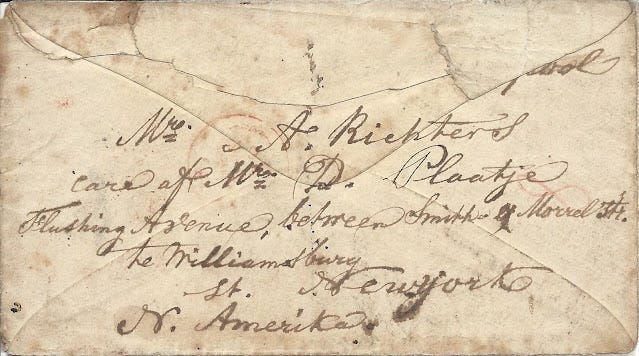 Mrs. A. Richters
care of Mrs. D. Plaatje
Flushing Avenue, between Smith & Morrel Str.
te Williamsbury
St. Newyork
N. Amerika.